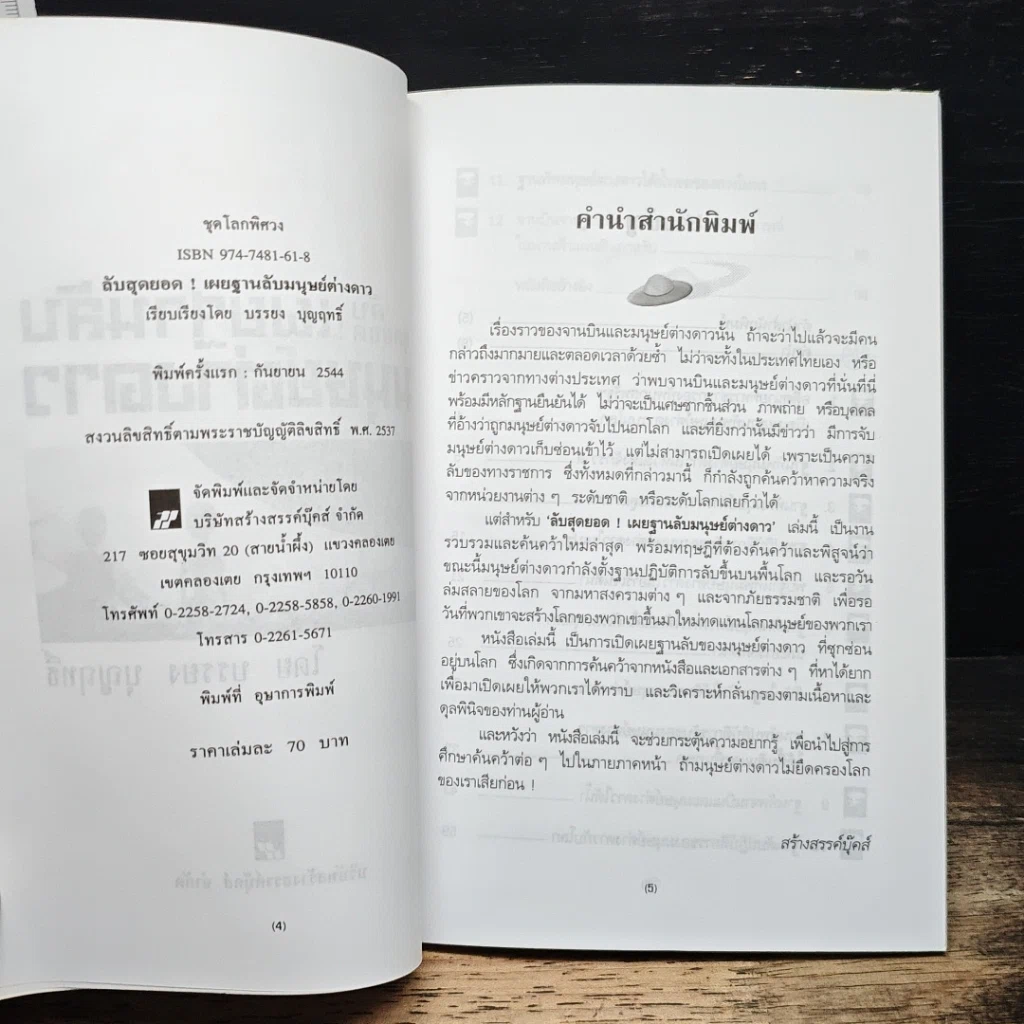 ชุดโลกพิศวง
ISBN 974-7481-61-8
ลับสุดยอด ! เผยฐานลับมนุษย์ต่างดาว
เรียบเรียงโดย บรรยง บุญฤทธิ์
พิมพ์ครั้งแรก : กันยายน 2544
สงวนลิขสิทธิ์ตามพระราชบัญญัติลิขสิทธิ์ พ.ศ. 2537
จัดพิมพ์และจัดจำหน่ายโดย
บริษัทสร้างสรรค์บุ๊คส์ จำกัด
217 ซอยสุขุมวิท 20 (สายน้ำผึ้ง) แขวงคลองเตย
เขตคลองเตย กรุงเทพฯ 10110
โทรศัพท์ 0-2258-2724, 0-2258-5858, 0-2260-1991
โทรสาร 0-2261-5671
พิมพ์ที่ อุษาการพิมพ์
ราคาเล่มละ 70 บาท
(4)
คำนำสำนักพิมพ์
เรื่องราวของจานบินและมนุษย์ต่างดาวนั้น ถ้าจะว่าไปแล้วจะมีคน
กล่าวถึงมากมายและตลอดเวลาด้วยซ้ำ ไม่ว่าจะทั้งในประเทศไทยเอง หรือ
ข่าวคราวจากทางต่างประเทศ ว่าพบจานบินและมนุษย์ต่างดาวที่นั่นที่นี่
พร้อมมีหลักฐานยืนยันได้ ไม่ว่าจะเป็นเศษซากชิ้นส่วน ภาพถ่าย หรือบุคคล
ที่อ้างว่าถูกมนุษย์ต่างดาวจับไปนอกโลก และที่ยิ่งกว่านั้นมีข่าวว่า มีการจับ
มนุษย์ต่างดาวเก็บซ่อนเข้าไว้ แต่ไม่สามารถเปิดเผยได้ เพราะเป็นความ
ลับของทางราชการ ซึ่งทั้งหมดที่กล่าวมานี้ ก็กำลังถูกค้นคว้าหาความจริง
จากหน่วยงานต่าง ๆ ระดับชาติ หรือระดับโลกเลยก็ว่าได้
แต่สำหรับ ‘ลับสุดยอด ! เผยฐานลับมนุษย์ต่างดาว’ เล่มนี้ เป็นงาน
รวบรวมและค้นคว้าใหม่ล่าสุด พร้อมทฤษฎีที่ต้องค้นคว้าและพิสูจน์ว่า
ขณะนี้มนุษย์ต่างดาวกำลังตั้งฐานปฏิบัติการลับขึ้นบนพื้นโลก และรอวัน
ล่มสลายของโลก จากมหาสงครามต่าง ๆ และจากภัยธรรมชาติ เพื่อรอ
วันที่พวกเขาจะสร้างโลกของพวกเขาขึ้นมาใหม่ทดแทนโลกมนุษย์ของพวกเรา
หนังสือเล่มนี้ เป็นการเปิดเผยฐานลับของมนุษย์ต่างดาว ที่ซุกซ่อน
อยู่บนโลก ซึ่งเกิดจากการค้นคว้าจากหนังสือและเอกสารต่าง ๆ ที่หาได้ยาก
เพื่อมาเปิดเผยให้พวกเราได้ทราบ และวิเคราะห์กลั่นกรองตามเนื้อหาและ
ดุลพินิจของท่านผู้อ่าน
และหวังว่า หนังสือเล่มนี้ จะช่วยกระตุ้นความอยากรู้ เพื่อนำไปสู่การ
ศึกษาค้นคว้าต่อ ๆ ไปในภายภาคหน้า ถ้ามนุษย์ต่างดาวไม่ยึดครองโลก
ของเราเสียก่อน !
สร้างสรรค์บุ๊คส์
(5)